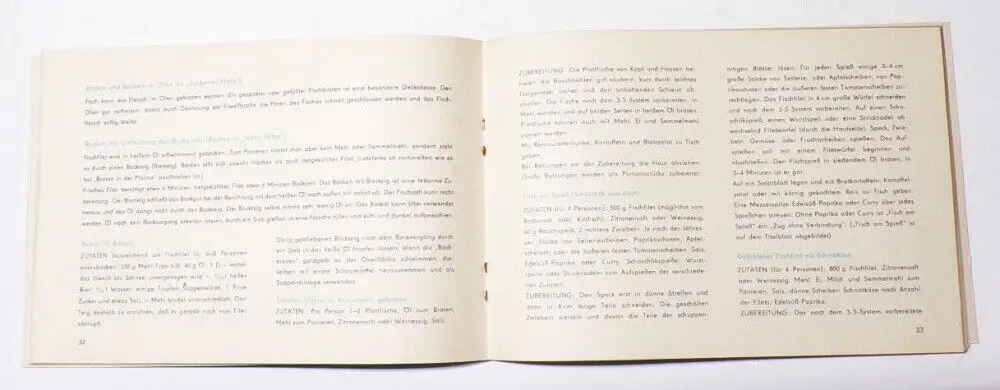 Fisch kann wie Fleisch im Ofen gebraten werden. Ein gespickter oder gefüllter Fischbraten ist eine besondere Delikatesse. Den
Ofen gut vorheizen, damit durch Gerinnung der Eiweißstoffe die Poren des Fisches schnell geschlossen werden und das Fisch-
fleisch saftig bleibt.
Fischfilet wird in heißem Öl schwimmend gebacken. Zum Panieren nimmt man aber kein Mehl oder Semmelmehl, sondern zieht
es durch einen Backteig (Bierteig). Backen läßt sich sowohl frisches als auch tiefgekühltes Filet (Letzteres ist vorbereiten wie es
bei „Braten in der Pfanne" beschrieben ist.)
Frisches Filet benötigt etwa 4 Minuten, tiefgekühltes Filet etwa 6 Minuten Backzeit. Das Backen mit Bierteig ist eine fettarme Zu-
bereitung. Der Bierteig schließt das Backgut bei der Berührung mit dem heißen Öl nach außen hin sofort ab. Der Fischsaft kann nicht
heraus und das Öl dringt nicht durch den Backteig. Der Backteig selbst nimmt sehr wenig Öl an. Das Backöl kann öfter verwendet
werden. Öl nach dem Backvorgang erkalten lassen, durch ein Sieb gießen, in eine Flasche füllen und kühl und dunkel aufbewahren.
ZUTATEN (ausreichend um Fischfilet für 6–8 Personen
auszubacken: 250 g Mehl Type 630, 40 g Öl, 1 Ei – wobei
das Eiweiß als Schnee unterzogen wird –, helles
Bier, Wasser, einige Tropfen Suppenwürze, 1 Prise
Zucker und etwas Salz, – Mehl binden unterschiedlich. Den
Teig deshalb so anrühren, daß er gerade noch vom Filet
abtropft.
Übrig gebliebenen Backteig nach dem Backvorgang durch
ein Sieb in das heiße Öl tropfen lassen. Wenn die „Back-
erbsen" goldgelb an der Oberfläche schwimmen, die-
selben mit einem Schaumlöffel herausnehmen und als
Suppeneinlage verwenden.
ZUTATEN: Pro Person 1–2 Plattfische, Öl zum Braten,
Mehl zum Panieren, Zitronensaft oder Weinessig, Salz.
32
ZUBEREITUNG: Die Plattfische von Kopf und Flossen be-
freien, die Bauchhöhlen gut säubern, kurz durch leichtes
Essigwasser ziehen und den anhaftenden Schleim ab-
Die Fische nach dem 3-S-System vorbereiten, in
Mehl wenden und auf beiden Seiten in heißem Öl braten.
Plattfische können auch mit Mehl, Ei und Semmelmehl
paniert werden.
Mit Remouladentunke, Kartoffeln und Blattsalat zu Tisch
geben.
Bei Rotzungen vor der Zubereitung die Haut abziehen.
Große Rotzungen werden als Portionsstücke zubereitet.
ZUTATEN (für 4 Personen): 500 g Fischfilet (möglichst vom
Rotbarsch oder Katfisch), Zitronensaft oder Weinessig,
60 g Rauchspeck, 2 mittlere Zwiebeln. Je nach der Jahres-
zeit: Stücke von Sellerieherzen, Paprikaschoten, Apfel-
scheiben oder die äußeren fester Tomatenscheiben, Salz,
Edelsüß-Paprika oder Curry, Schaschlikspieße, Wurst-
speile oder Stricknadeln zum Aufspießen der verschiede-
nen Zutaten.
ZUBEREITUNG: Den Speck erst in dünne Streifen und
dann in 4 cm lange Teile schneiden. Die geschälten
Zwiebeln vierteln und davon die Teile der schuppen-
artigen Blätter lösen. Für jeden Spieß einige 3–4 cm
große Stücke von Sellerie- oder Apfelscheiben, von Pap-
rikaschoten oder die äußeren festen Tomatenscheiben zu-
rechtlegen. Das Fischfilet in 4 cm große Würfel schneiden
und nach dem 3-S-System vorbereiten. Auf einen Scha-
schlikspieß, einen Wurstspeil oder eine Stricknadel ab-
wechselnd Filetwürfel (durch die Hautseite), Speck, Zwie-
beln, Gemüse oder Fruchtscheiben, spießen. Das Auf-
spießen soll mit einem Filetwürfel beginnen und
abschließen. Den Fischspieß in siedendem Öl braten. In
3–4 Minuten ist er gar.
Auf ein Salatblatt legen und mit Bratkartoffeln, Kartoffel-
salat oder mit körnig gekochtem Reis zu Tisch geben.
Eine Messerspitze Edelsüß-Paprika oder Curry über jedes
Spießchen streuen. Ohne Paprika oder Curry ist „Fisch am
Spieß" ein „Zug ohne Verbindung". („Fisch am Spieß" ist
auf dem Titelblatt abgebildet)
Gebratenes Fischfilet mit Schnittkäse
ZUTATEN (für 4 Personen): 800 g Fischfilet, Zitronensaft
oder Weinessig, Mehl, Ei, Milch und Semmelmehl zum
Panieren, Salz, dünne Scheiben Schnittkäse nach Anzahl
der Filets, Edelsüß-Paprika.
ZUBEREITUNG: Das nach dem 3-S-System vorbereitete
33